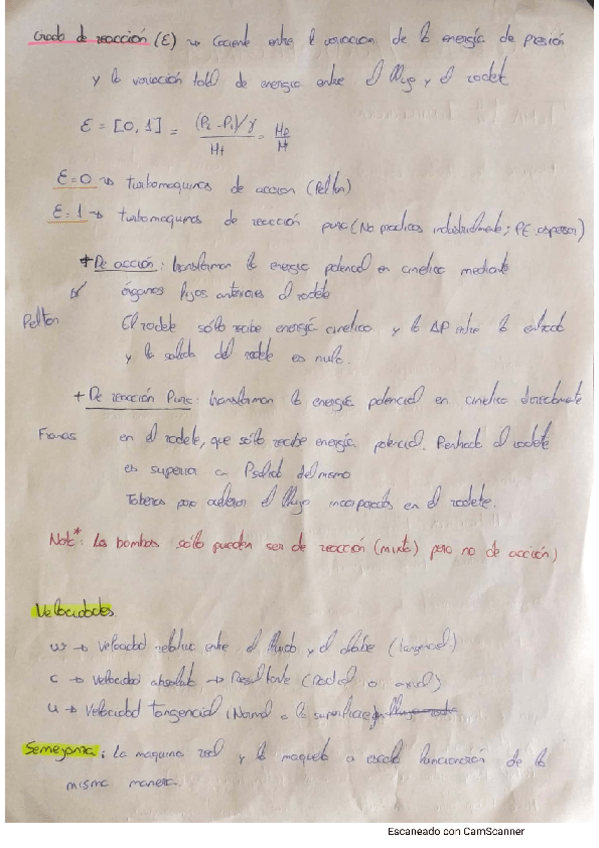 Grado de reacción (ε) → Cociente entre la variacion de la energía de presión
y la variación total de energia entre el flujo y el rodete
ε = [0, 1] = (P2 - P1)/γ / Ht = Hp / Ht
ε=0 → turbomaquinas de accion (Pelton)
ε=1 → turbomaquinas de reacción pura (No practicas industrialmente; PE aspersor)
* De acción: transforman la energia potencial en cinetica mediante
organos fijos anteriores al rodete
Pelton
El rodete sólo recibe energía cinetica y la ΔP entre la entrada
y la salida del rodete es nula.
+ De reacción Pura: transforman la energia potencial en cinetica directamente
Francis
en el rodete, que sólo recibe energía potencial. Pentrada al rodete
es superior a Psalida del mismo
Toberas para acelerar el flujo incorporadas en el rodete.
Not*: Las bombas sólo pueden ser de reacción (mixta) pero no de acción)
Velocidades
w → velocidad relativa entre el fluido y el álabe (tangencial)
c → velocidad absoluta → Resultante (Radial o axial)
u → Velocidad tangencial (Normal a la superficie
Semejanza: La maquina real y la maqueta a escala funcionarán de la
misma manera.
Escaneado con CamScanner